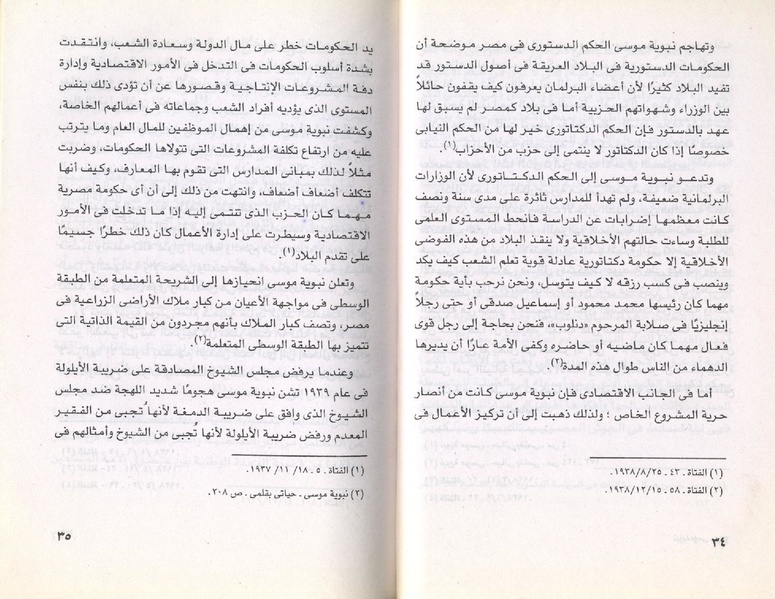 وتهاجم نبوية موسى الحكم الدستورى فى مصر موضحة أن
الحكومات الدستورية فى البلاد العريقة فى أصول الدستور قد
تفيد البلاد كثيرًا لأن أعضاء البرلمان يعرفون كيف يقفون حائلاً
بين الوزراء وشهواتهم الحزبية أما فى بلاد كمصر لم يسبق لها
عهد بالدستور فإن الحكم الدكتاتورى خير لها من الحكم النيابى
خصوصًا إذا كان الدكتاتور لا ينتمى إلى حزب من الأحزاب(١).
وتدعو نبوية موسى إلى الحكم الدكتاتورى لأن الوزارات
البرلمانية ضعيفة، ولم تهدأ للمدارس ثائرة على مدى سنة ونصف
كانت معظمها إضرابات عن الدراسة فانحط المستوى العلمى
للطلبة وساءت حالتهم الأخلاقية ولا ينقذ البلاد من هذه الفوضى
الأخلاقية إلا حكومة دكتاتورية عادلة قوية تعلم الشعب كيف يكد
وينصب فى كسب رزقه لا كيف يتوسل، ونحن نرحب بأية حكومة
مهما كان رئيسها محمد محمود أو إسماعيل صدقى أو حتى رجلاً
إنجليزيًا فى صلابة المرحوم «دنلوب»، فنحن بحاجة إلى رجل قوى
فعال مهما كان ماضيه أو حاضره وكفى الأمة عارًا أن يديرها
الدهماء من الناس طوال هذه المدة(٢).
أما فى الجانب الاقتصادى فإن نبوية موسى كانت من أنصار
حرية المشروع الخاص ؛ ولذلك ذهبت إلى أن تركيز الأعمال فى
(١) الفتاة . ٤٣ . ١٩٣٨/٨/٢٥.
(٢) الفتاة . ٥٨ . ١٩٣٨/١٢/١٥.
٣٤
يد الحكومات خطر على مال الدولة وسعادة الشعب، وانتقدت
بشدة أسلوب الحكومات فى التدخل فى الأمور الاقتصادية وإدارة
دفة المشروعات الإنتاجية وقصورها عن أن تؤدى ذلك بنفس
المستوى الذى يؤديه أفراد الشعب وجماعاته فى أعمالهم الخاصة،
وكشفت نبوية موسى من إهمال الموظفين للمال العام وما يترتب
عليه من ارتفاع تكلفة المشروعات التى تتولاها الحكومات، وضربت
مثلاً لذلك بمبانى المدارس التى تقوم بها المعارف، وكيف أنها
تتكلف أضعاف أضعاف، وانتهت من ذلك إلى أن أى حكومة مصرية
مهما كان الحزب الذى تنتمى إليه إذا ما تدخلت فى الأمور
الاقتصادية وسيطرت على إدارة الأعمال كان ذلك خطرًا جسيمًا
على تقدم البلاد(١).
وتعلن نبوية موسى انحيازها إلى الشريحة المتعلمة من الطبقة
الوسطى فى مواجهة الأعيان من كبار ملاك الأراضى الزراعية فى
مصر، وتصف كبار الملاك بأنهم مجردون من القيمة الذاتية التى
تتميز بها الطبقة الوسطى المتعلمة(٢).
وعندما يرفض مجلس الشيوخ المصادقة على ضريبة الأيلولة
فى عام ١٩٣٩ تشن نبوية موسى هجومًا شديد اللهجة ضد مجلس
الشيوخ الذى وافق على ضريبة الدمغة لأنها تُجبى من الفقير
المعدم ورفض ضريبة الأيلولة لأنها تُجبى من الشيوخ وأمثالهم فى
(١) الفتاة . ٥ . ١٨ /١١ /١٩٣٧.
(٢) نبوية موسى . حياتى بقلمى . ص ٢٠٨.
٣٥